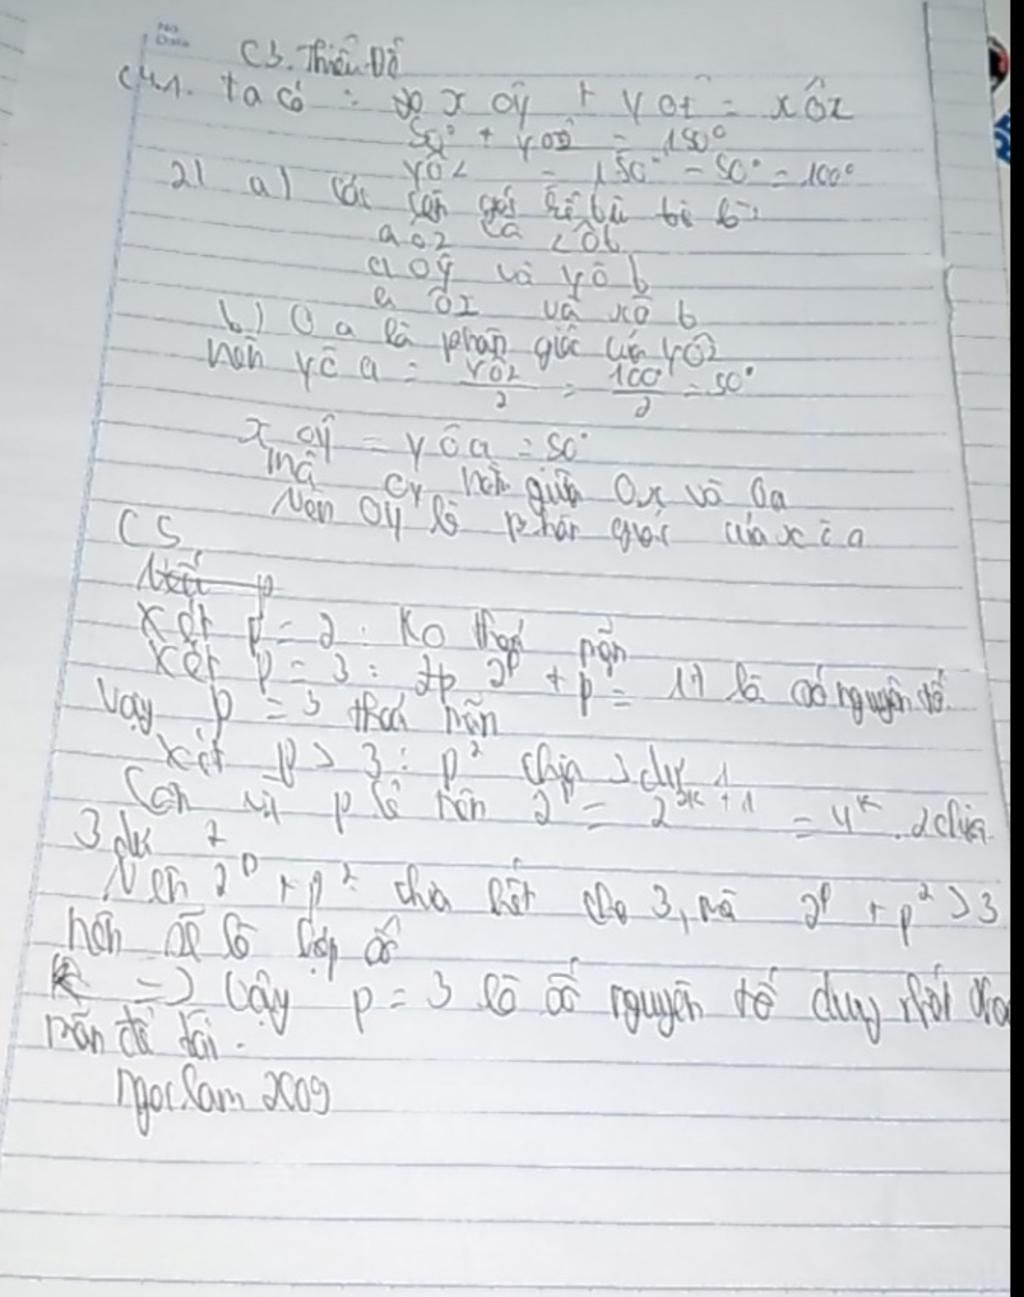 No
Date
C3. Thiếu Đề
C4.1. ta có : xOy + yOz = xÔz
50° + yÔz = 150°
yÔz = 150° - 50° = 100°
2) a) Các góc kề bù
aOz và zÔb
aOy và yÔb
aÔx và xÔb
b) Oa là phân giác của yÔz
nên yÔa = yÔz/2 = 100/2 = 50°
xOy = yÔa = 50°
mà Oy nằm giữa Ox và Oa
Nên Oy là phân giác của xOa
C5
Xét p = 2 : Ko thoả mãn
Xét p = 3 : 2^p + p = 17 là số nguyên tố
Vậy p = 3 thoả mãn
Xét p > 3 : p² chia 3 dư 1
Còn vì p lẻ nên 2^p = 2^{2k+1} = 4^k . 2 chia
3 dư 2
Nên 2^p + p² chia hết cho 3, mà 2^p + p² > 3
nên sẽ là hợp số
=> Vậy p = 3 là số nguyên tố duy nhất thoả
mãn đề bài.
Ngoclam2009